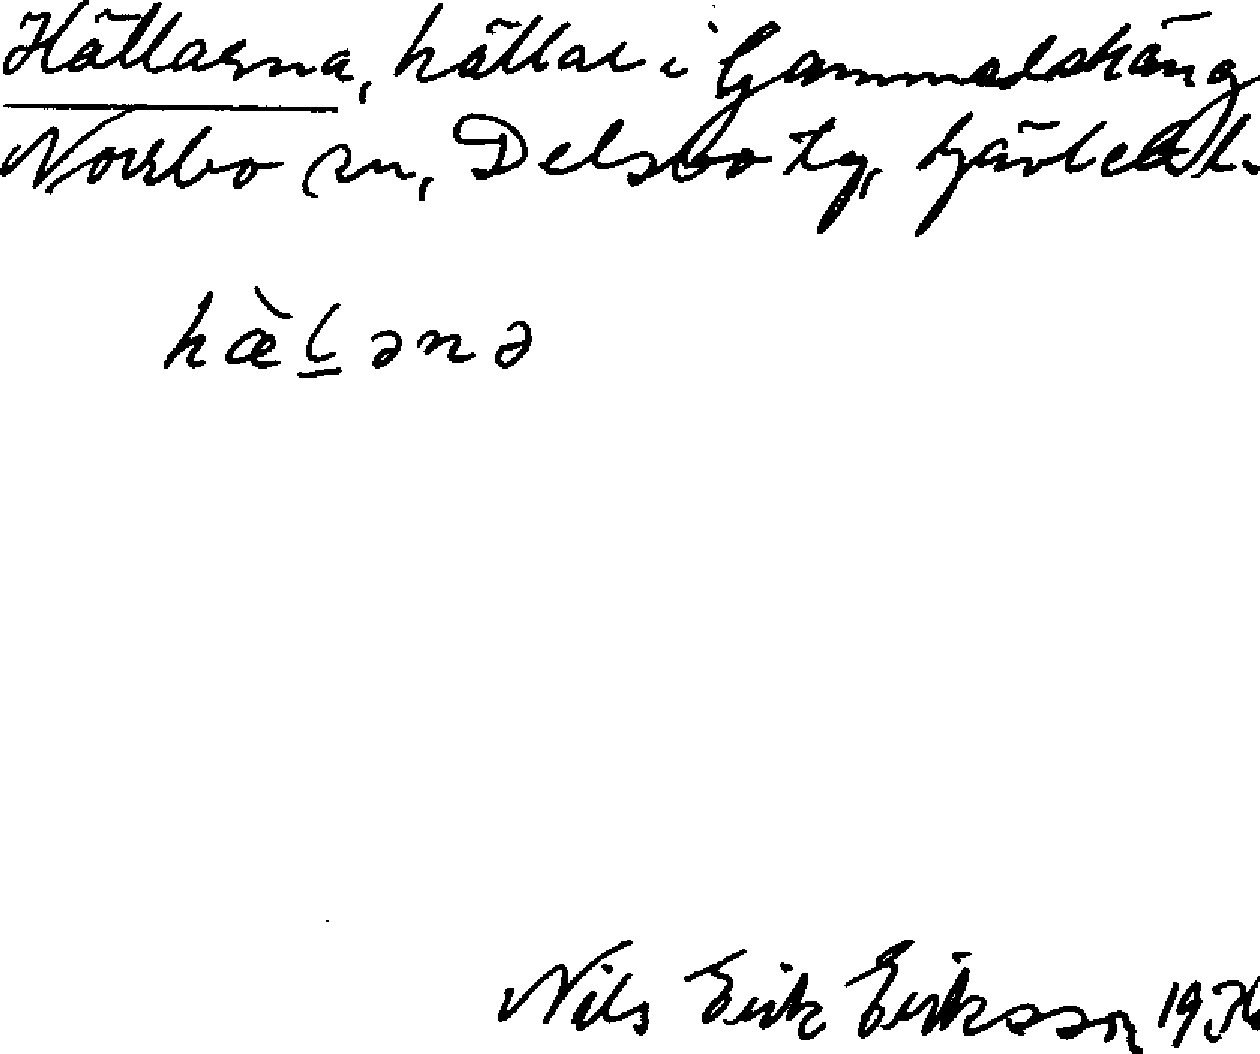 Hällarna, hällar i Gammalsäng
Norrbo sn, Delsbo tg, Gävleb l.
hæ̀l̲ənə
Nils Erik Eriksson 1936